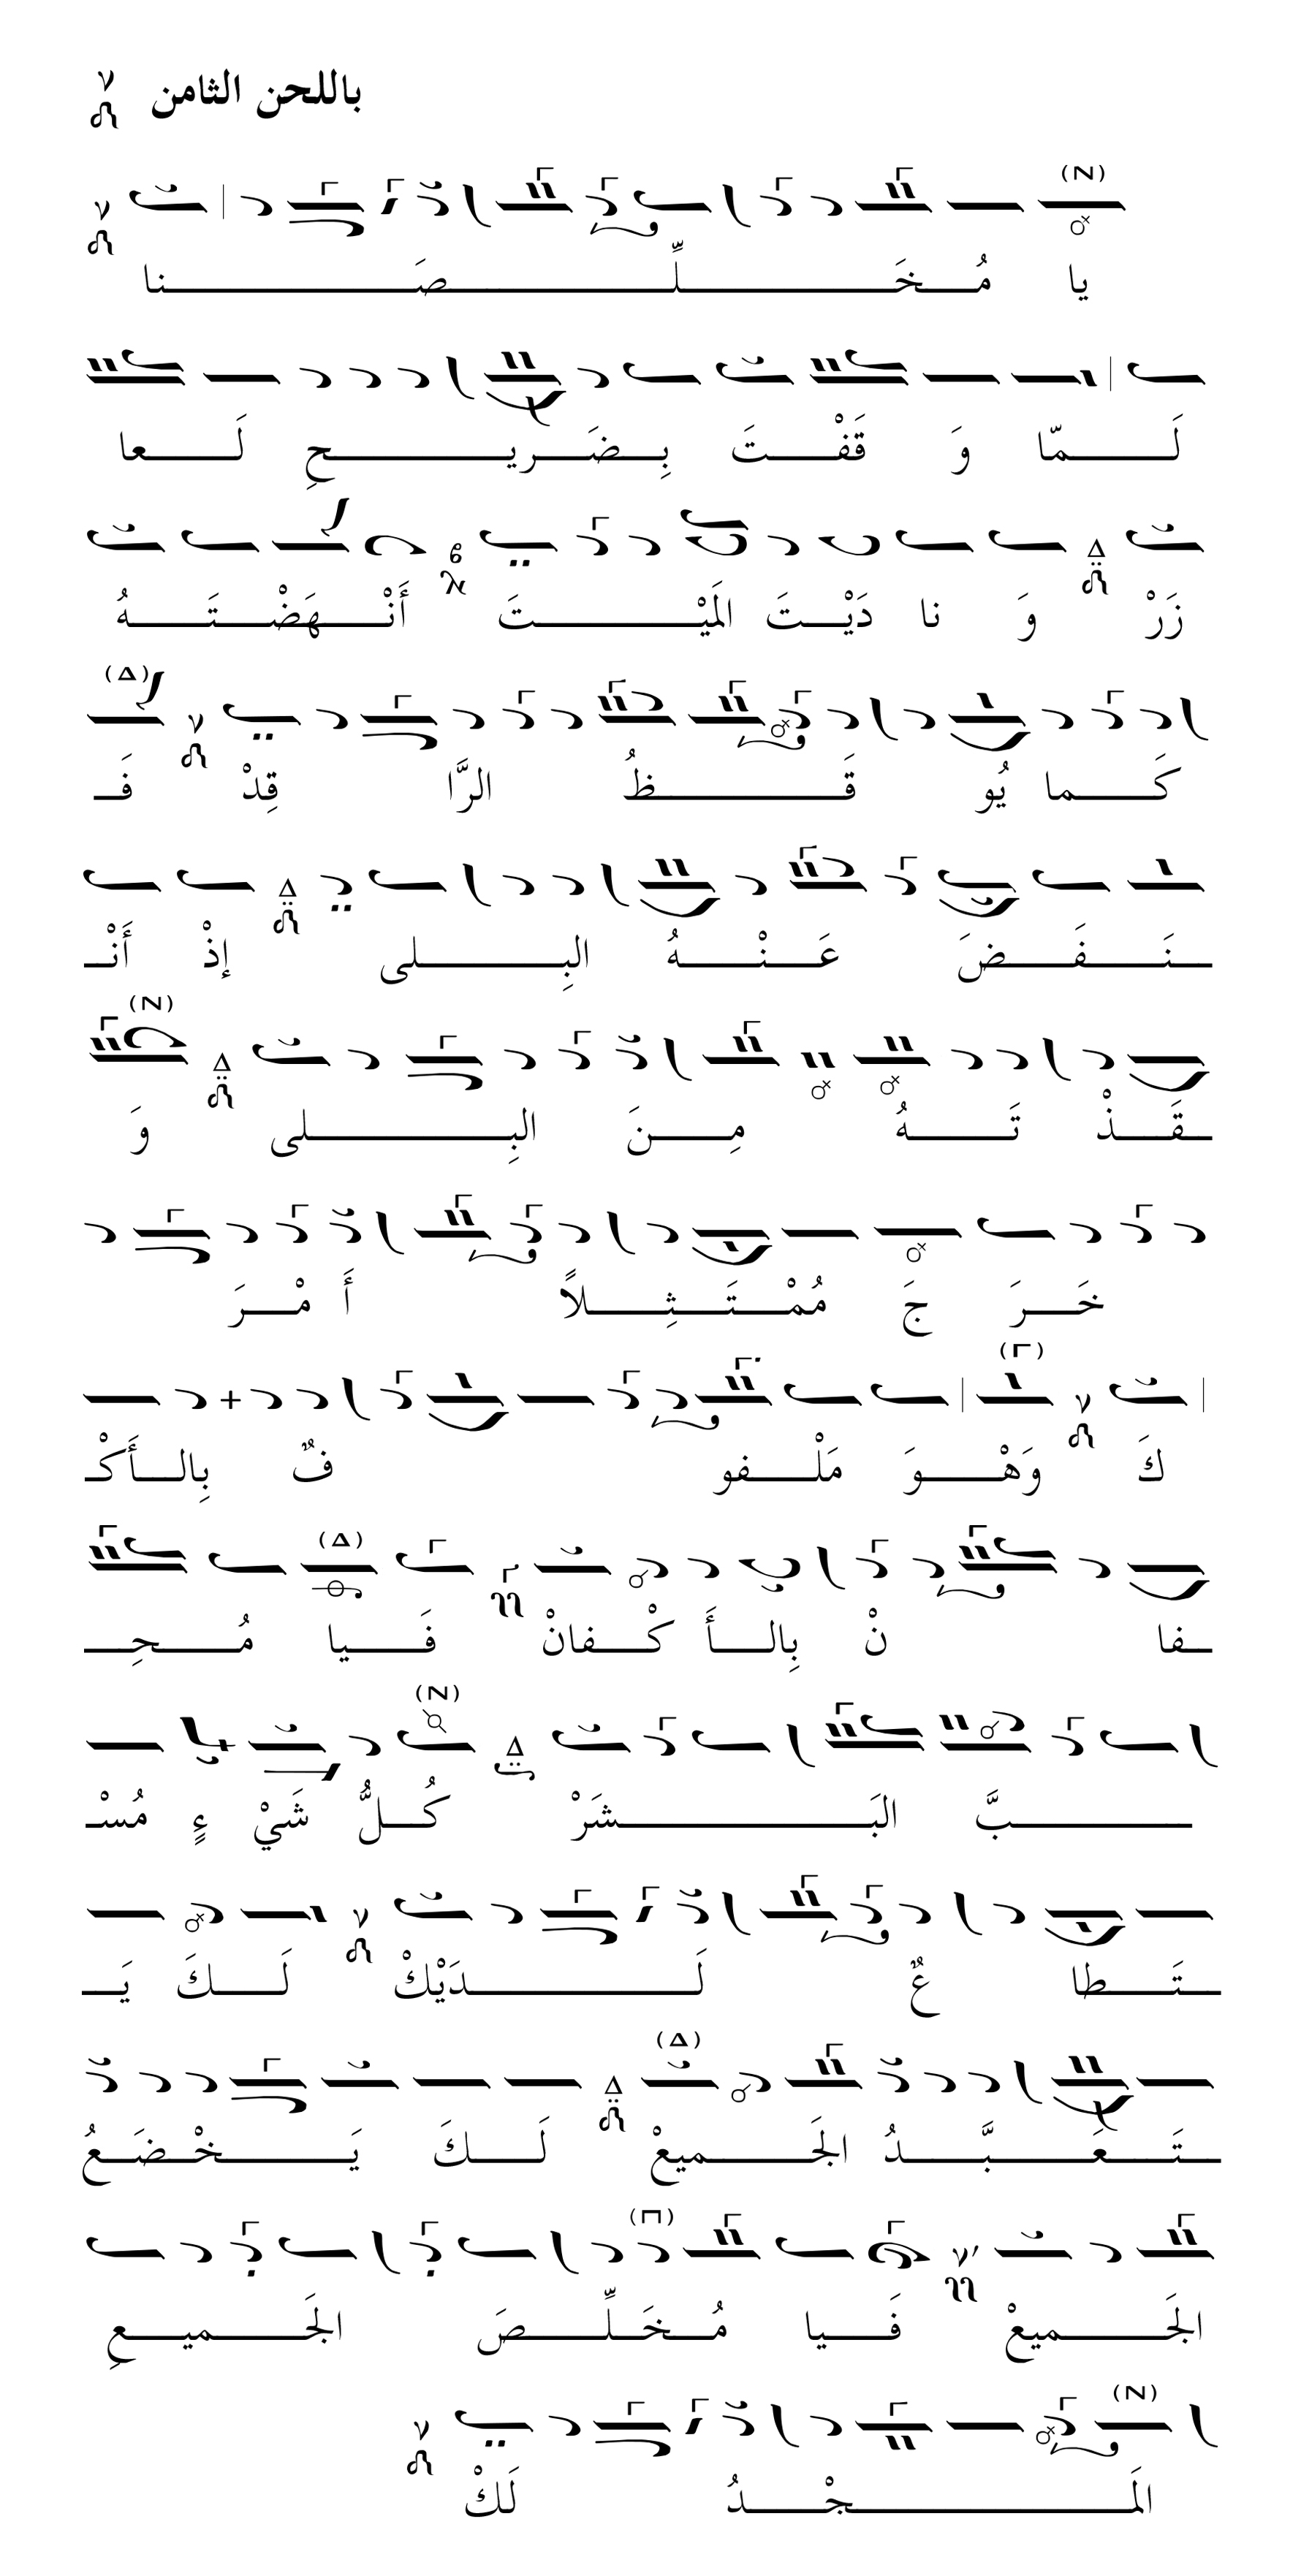 باللحن الثامن
يا مُخَلِّصَنا
لَمّا وَقَفْتَ بِضَريحِ لَعا
زَرْ وَنا دَيْتَ المَيْتَ أَنْهَضْتَهُ
كَما يُو قَظُ الرَّا قِدْ فَـ
ـنَفَضَ عَنْهُ البِلى إذْ أَنْـ
ـقَذْ تَهُ مِنَ البِلى وَ
خَرَ جَ مُمْتَثِلاً أَ مْرَ
كَ وَهْوَ مَلْفو فٌ بِالأَكْـ
ـفا نْ بِالأَ كْفانْ فَيا مُحِـ
ـبَّ البَشَرْ كُلُّ شَيْ ءٍ مُسْـ
ـتَطا عٌ لَدَيْكْ لَكَ يَـ
ـتَعَبَّدُ الجَميعْ لَكَ يَخْضَعُ
الجَميعْ فَيا مُخَلِّصَ الجَميعِ
المَجْدُ لَكْ